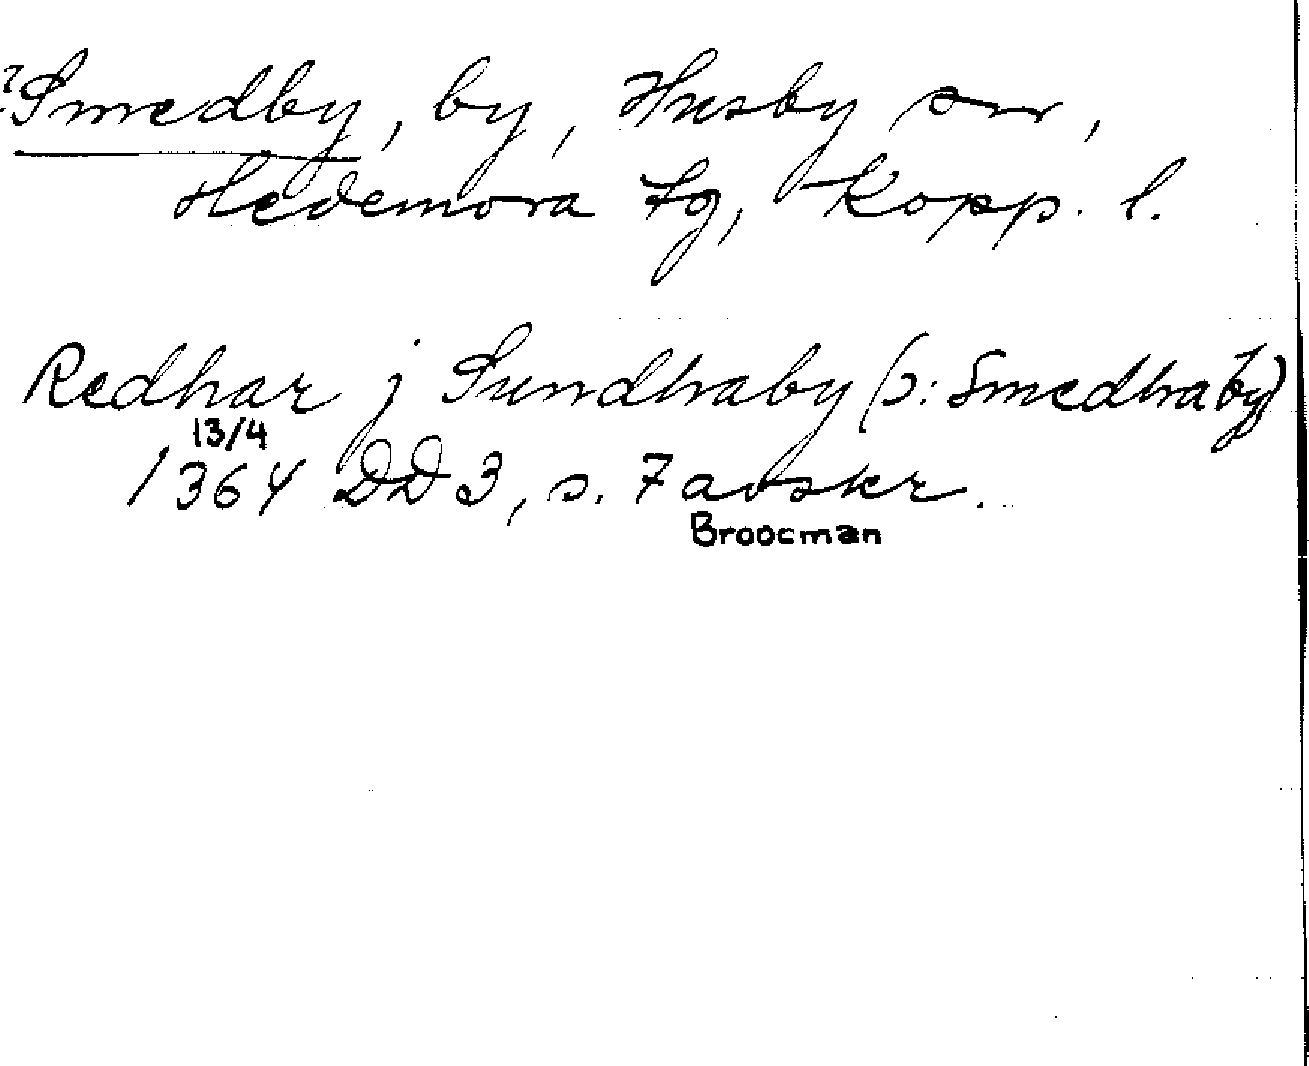 ?Smedby, by, Husby sn,
Hedemora tg, Kopp. l.
Redhar j Sundhaby (ɔ: Smedhaby)
13/4
1364 DD 3, s. 7 avskr.
Broocman